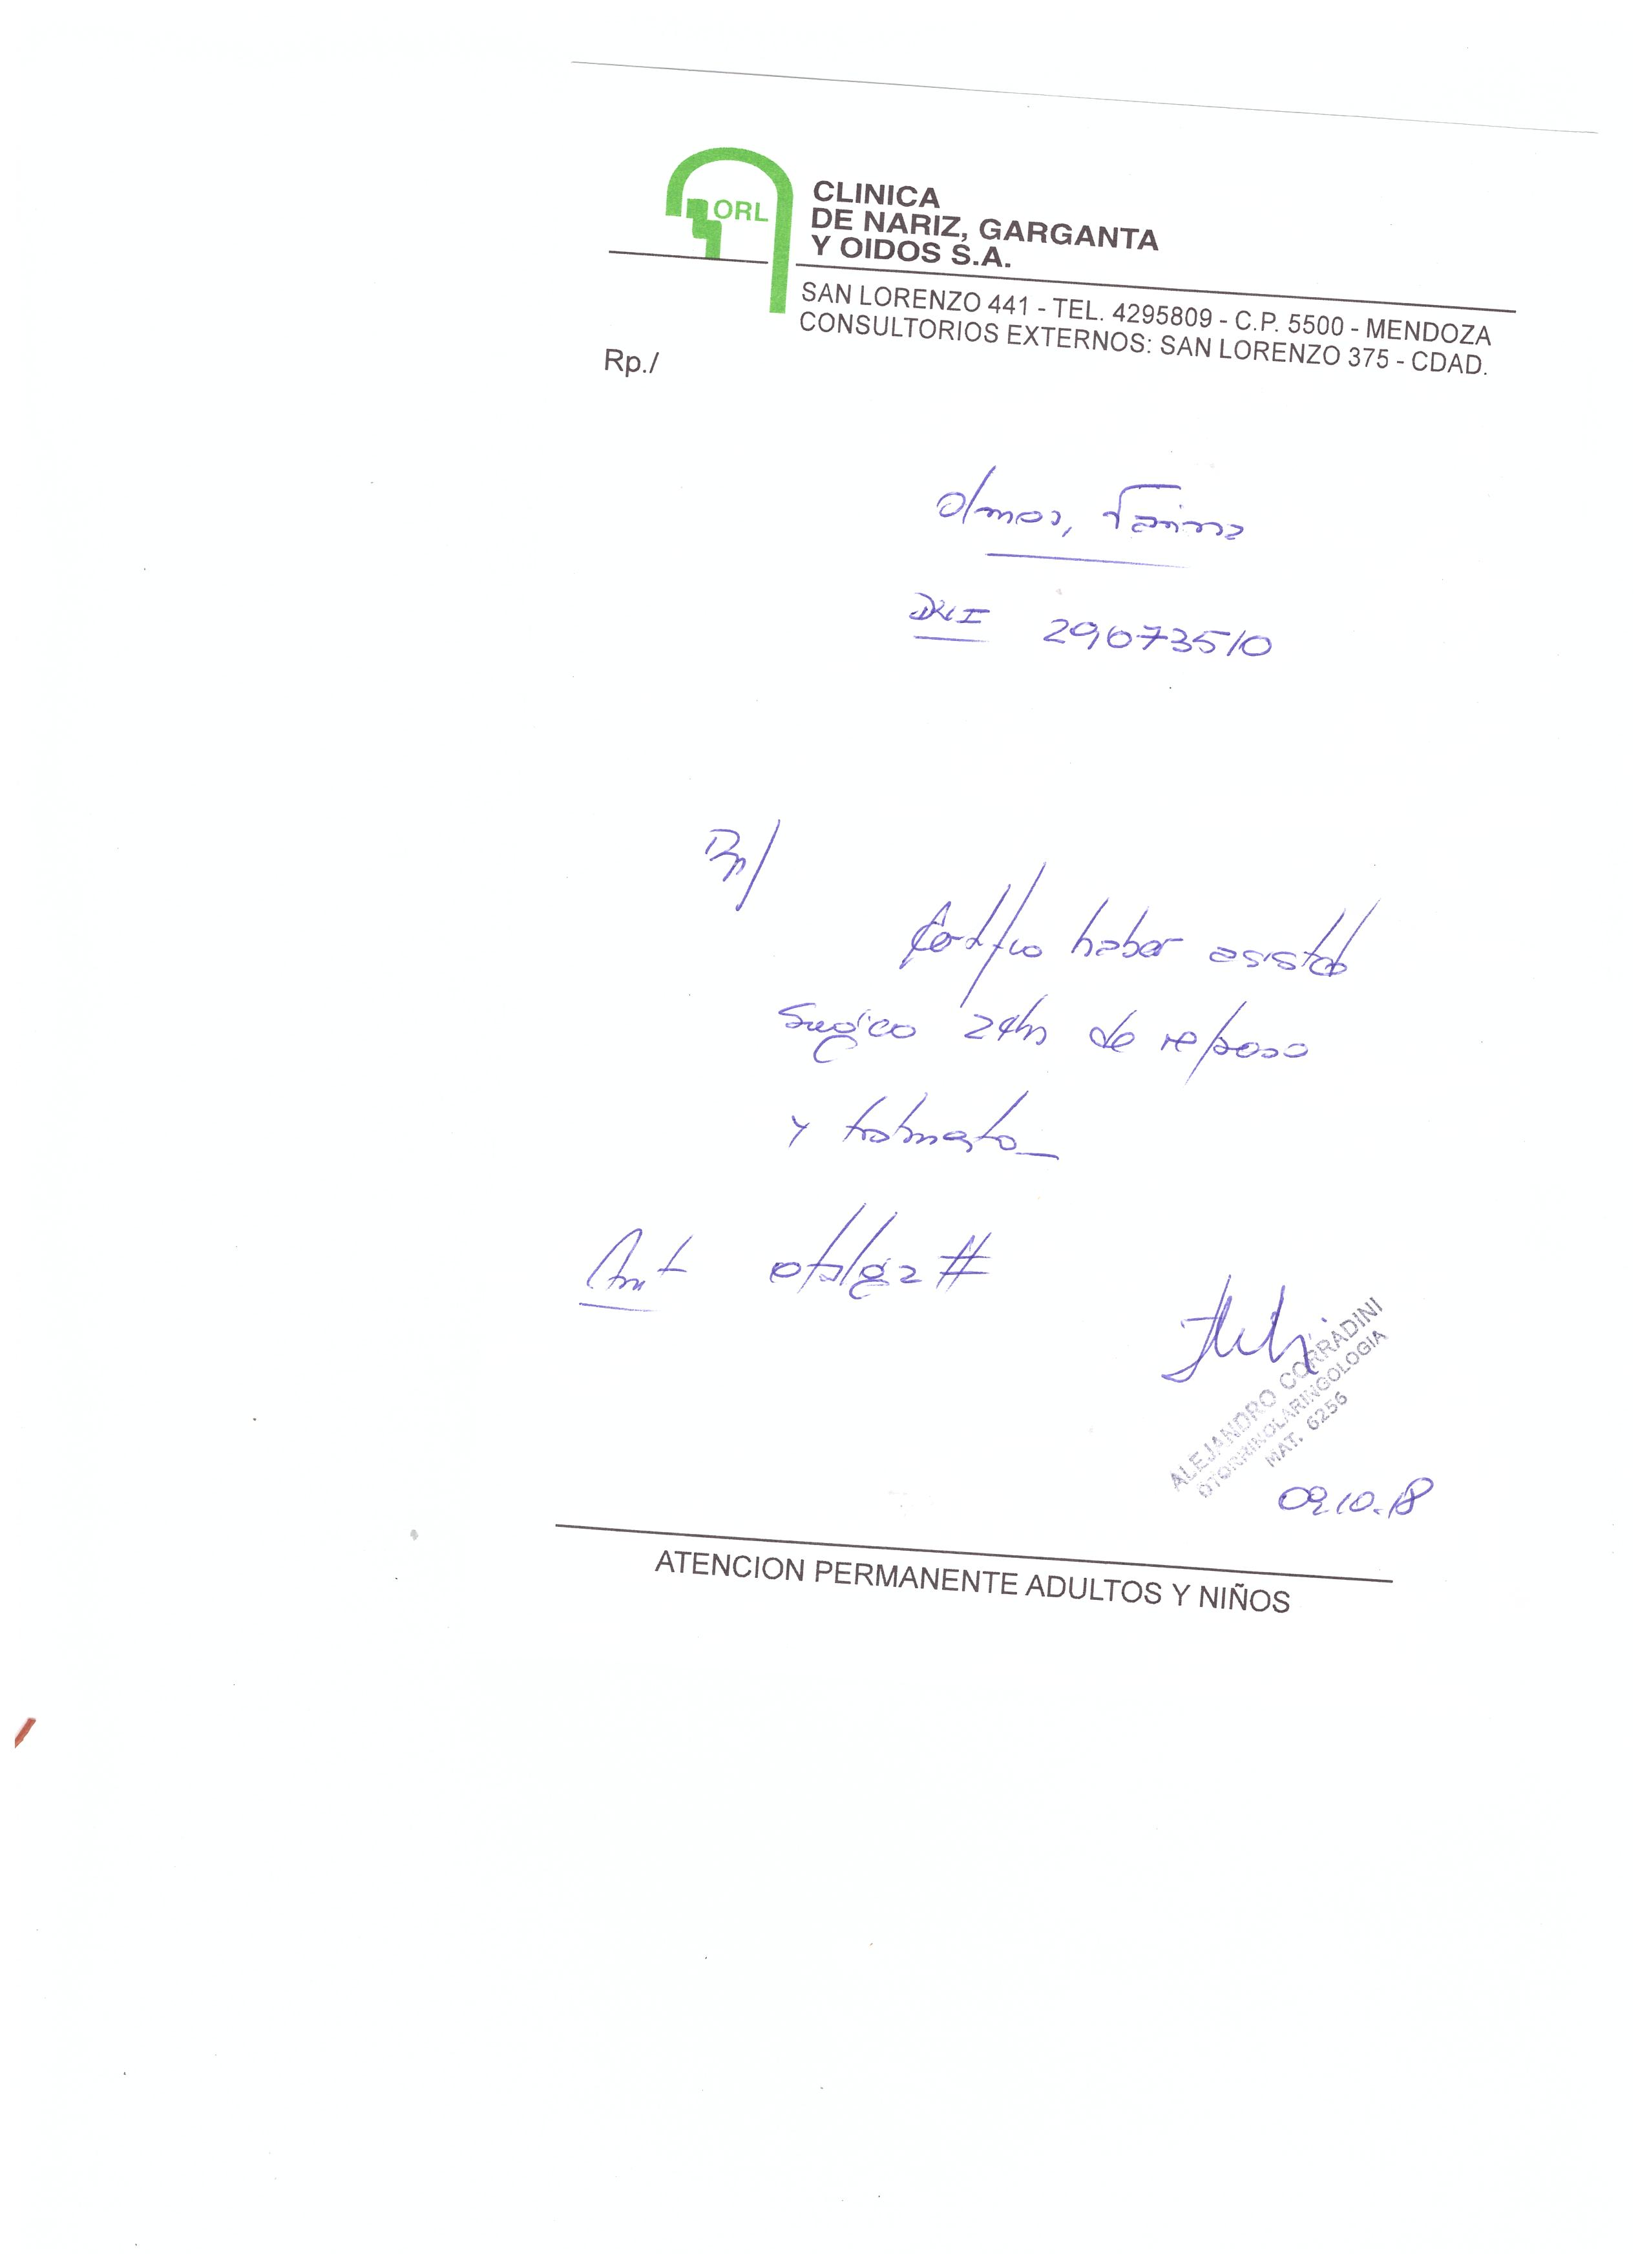 ORL
CLINICA
DE NARIZ, GARGANTA
Y OIDOS S.A.
SAN LORENZO 441 - TEL. 4295809 - C.P. 5500 - MENDOZA
CONSULTORIOS EXTERNOS: SAN LORENZO 375 - CDAD.
Rp./
Olmos,
DNI 29673510
Rp/
Certifico haber asistido
Sugiero 24hs de reposo
y tratamiento
otalgia #
ALEJANDRO CORRADINI
OTORRINOLARINGOLOGIA
MAT. 6256
09.10.18
ATENCION PERMANENTE ADULTOS Y NIÑOS